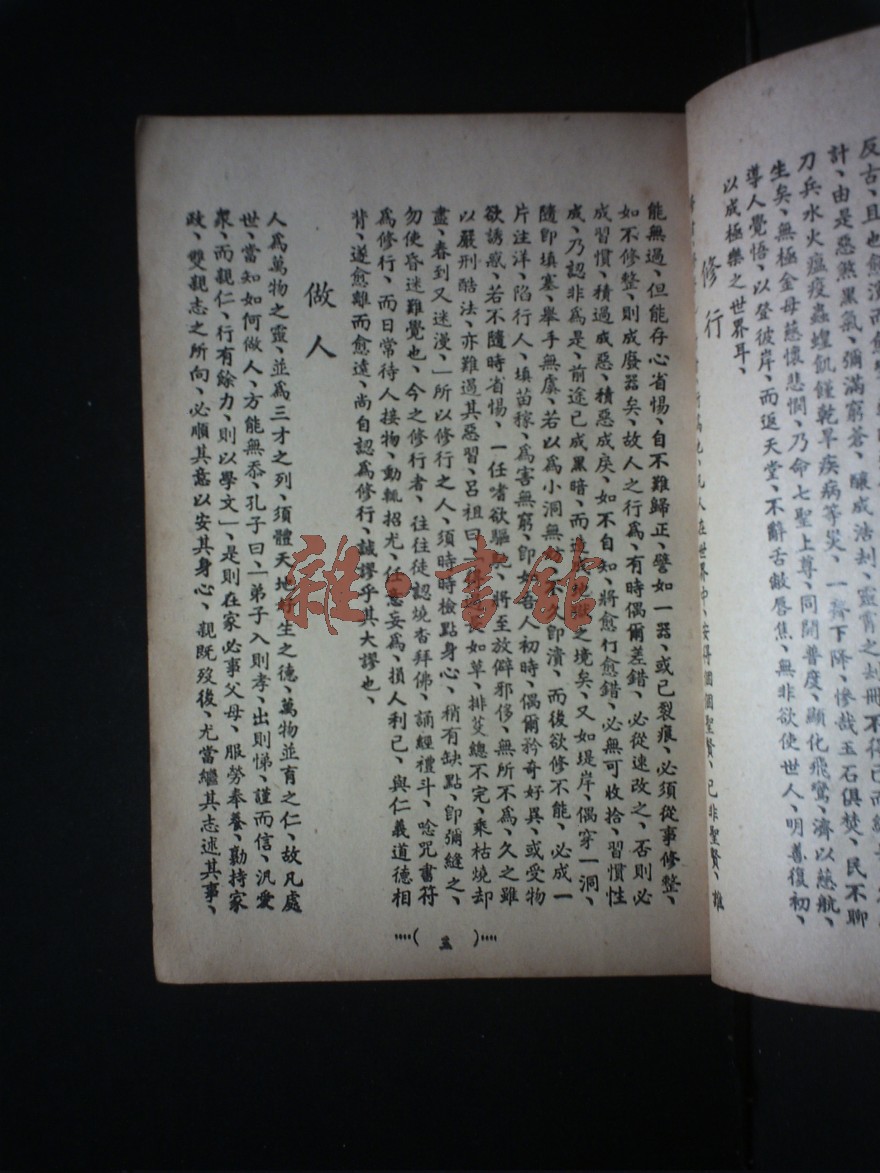 反古、且也愈演而愈
計、由是惡煞黑氣、彌滿窮蒼、釀成浩刦、靈霄之刦冊不得已而
刀兵水火瘟疫蟲蝗飢饉乾旱疾病等災、一齊下降、慘哉玉石俱焚、民不聊
生矣、無極金母慈懷悲憫、乃命七聖上尊、同開普度、顯化飛鸞濟以慈航、
導人覺悟、以登彼岸、而返天堂、不辭舌敝唇焦、無非欲使世人、明善復初、
以成極樂之世界耳、
修行
人在世界中、安得個個聖賢、已非聖賢、誰
能無過、但能存心省惕、自不難歸正、譬如一器、或已裂痕、必須從事修整、
如不修整、則成廢器矣、故人之行爲、有時偶爾差錯、必從速改之、否則必
成習慣、積過成惡、積惡成戾、如不自知、將愈行愈錯、必無可收拾、習慣性
成、乃認非爲是、前途已成黑暗、而造成地獄之境矣、又如堤岸、偶穿一洞、
隨卽填塞、舉手無虞、若以爲小洞無妨、不久卽潰、而後欲修不能、必成一
片汪洋、陷行人、填苗稼、爲害無窮、卽如吾人初時、偶爾矜奇好異、或受物
欲誘惑、若不隨時省惕、一任嗜欲驅使、將至放僻邪侈、無所不爲、久之雖
以嚴刑酷法、亦難遏其惡習、呂祖曰、休過長如草、排芟總不完、乘枯燒却
盡、春到又迷漫、」所以修行之人、須時時檢點身心、稍有缺點、卽彌縫之、
勿使昏迷難覺也、今之修行者、往往徒認燒香拜佛、誦經禮斗、唸咒書符
爲修行、而日常待人接物、動輒招尤、任意妄爲、損人利己、與仁義道德相
背、遂愈離而愈遠、尚自認爲修行、誠謬乎其大謬也、
做人
人爲萬物之靈、並爲三才之列、須體天地好生之德、萬物並育之仁、故凡處
世、當知如何做人、方能無忝、孔子曰、「弟子入則孝、出則悌、謹而信、汎愛
衆、而親仁、行有餘力、則以學文」、是則在家必事父母、服勞奉養、勷持家
政、雙親志之所向、必順其意以安其身心、親既歿後、尤當繼其志述其事、
( 五 )
雜·書館